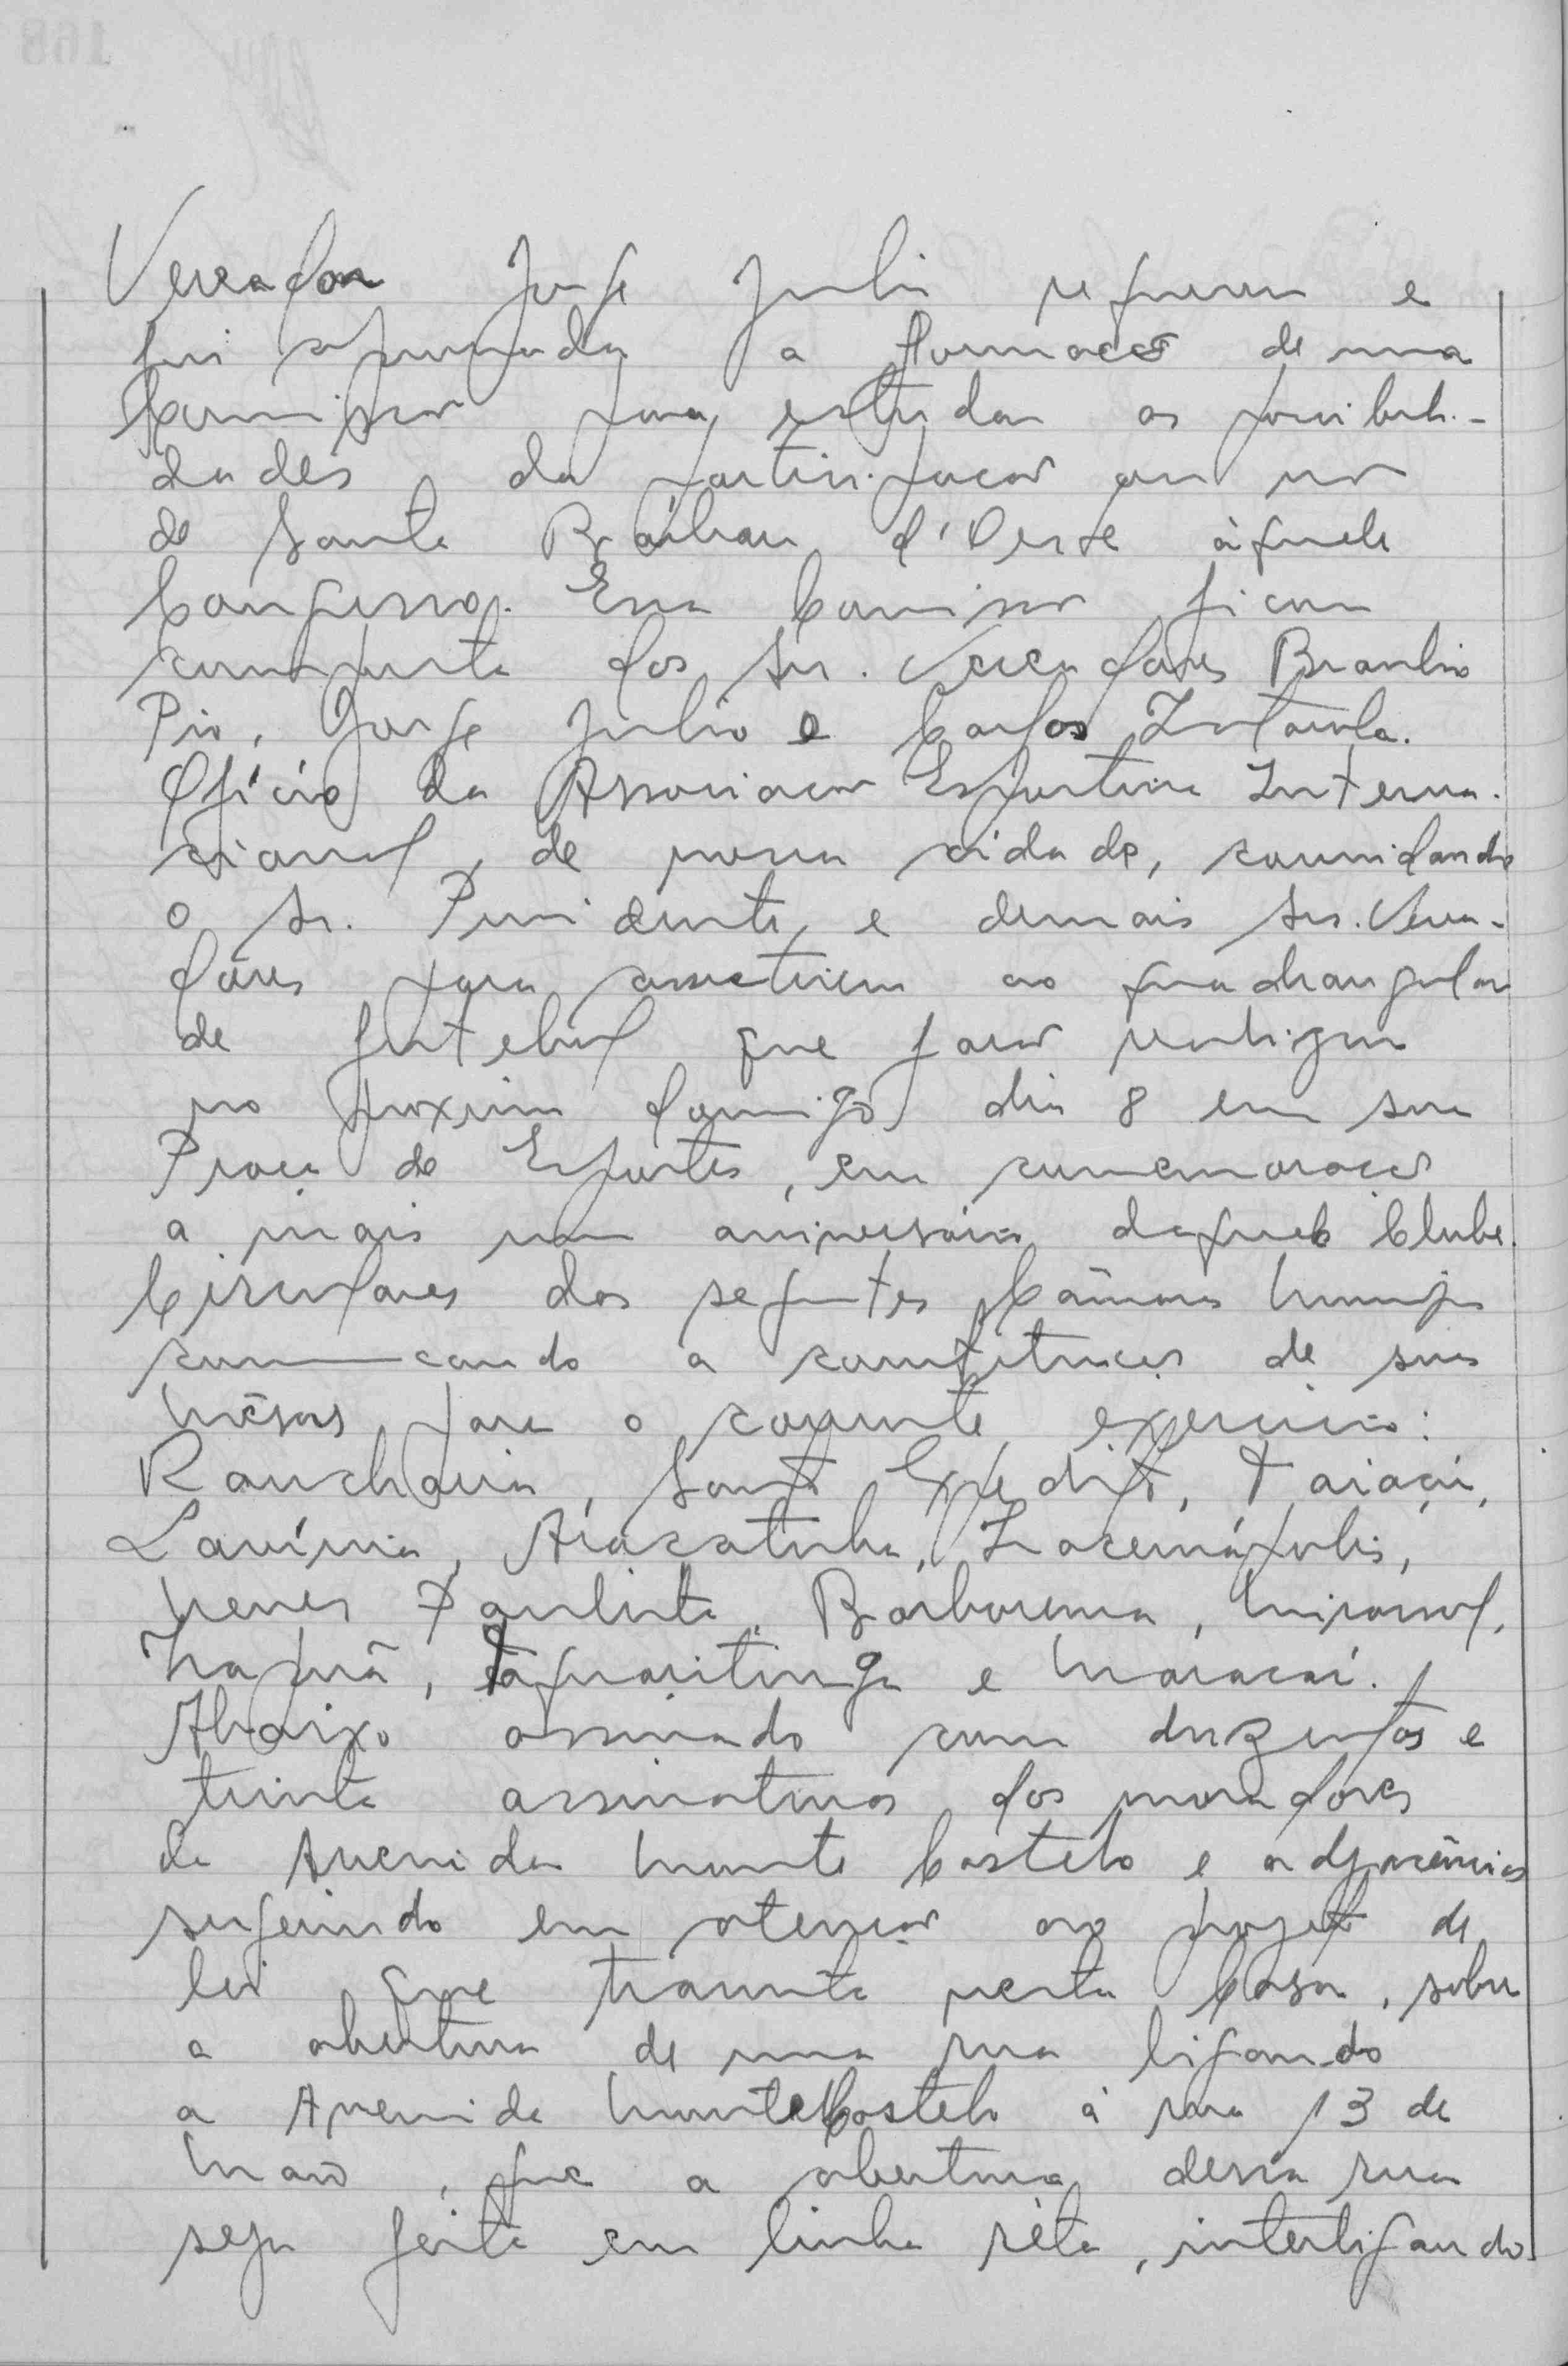 Vereador Jorge Julio requereu e
foi aprovada a formação de uma
Comissão para estudar as possibili-
dades da participação ou não
de Santa Bárbara d'Oeste àquele
Congresso. Essa Comissão ficou
composta dos srs. Vereadores Braulio
Pio, Jorge Julio e Carlos
Ofício da Associação Esportiva Interna-
cional, de nossa cidade, convidando
o sr. Presidente e demais srs. Verea-
dores para assistirem ao quadrangular
de futebol que farão realizar
no proximo domigo dia 8 em sua
Praça de Esportes, em comemoração
a mais um aniversário daquele Clube.
Circulares das seguintes Câmaras Municipais
comunicando a constituição de suas
Mêsas para o corrente exercicio:
Rancharia, Santo Expedito, Taiaçú,
Lavínia, Araçatuba, Iracemápolis,
Neves Paulista, Borborema, Mirassol,
Irapuã, Taquaritinga e Maracaí.
Abaixo assinado com duzentos e
trinta assinaturas dos moradores
da Avenida Monte Castelo e adjacências
sugerindo em atenção ao projeto de
lei que tramita nesta Casa, sobre
a abertura de uma rua ligando
a Avenida Monte Castelo à rua 13 de
Maio, que a abertura dessa rua
seja feita em linha réta, interligando